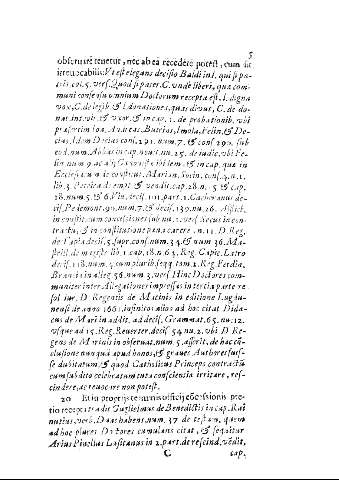 5
obseruare tenetur, nec ab ea recedere potest, cum sit
irreuocabilis: Vt est elegans decisio Baldi in l. qui se pa-
tris col. 5. vers. Quod si pater. C. vnde liberi, quæ com-
muni consensu omnium Doctorum recepta est, l. digna
vox, C. de legib. & l. donationes, quas diuus, C. de do-
nat. int. vir. & vxor. & in cap. 1. de probationib. vbi
præsertim Ioa. Andreas, Butrius, Imola, Felin. & De-
cius, idem Decius cons. 291. num. 7. & cons 290. sub
eod. num. Abbas in cap. nouit. nu. 25. de iudic. vbi Fe-
lin num 9
Ecclesiarum de constitut. Marian. Socin. cons. 4. n. 1.
lib. 3. 28. n. 5 & cap.
28. num. 5. & 6. Vin. decis. 101. part. 1. Cacheranus de-
cis. Pedemont. 90. num. 7. & decis. 139. nu. 16. Afflict.
in constit.
tractu, & in constitution pena carere. n. 11. D. Reg.
de Tapia decis. 5. supr. conf. num. 34. & num 36. Ma-
strill. de magistr. lib. 1. cap. 18. n. 63. Reg. Capic. Latro
decis. 118. num. 5. cum pluribus seqq. tom. 2. Reg. Perdia,
Brancia in alleg. 56. num. 3. vers. Hinc Doctores com-
muniter inter Allegationes impressas in tertia parte re
sol. iur. D. Regentis de Marinis in editione Lugdu-
nensi de anno 1661. infinitos alios ad hoc citat Dida-
cus de Mari in addit. ad decis. Grammat. 65. nu. 12.
vsque ad 15. Reg. Reuerter. decis 54. nu. 2. vbi D. Re-
gens de Marinis in obseruat. num. 5. asserit, de hac cō-
clusione nunquā apud bonos, & graues Authores fuis-
se dubitatum & quod Catholicus Princeps contractū
cum subditis celebratum tuta conscientia irritare, ref-
cindere, ac reuocare non potest.
20 Et in proprijs terminis officij cōcessionis pre-
tio recepto tradit Guglielmus de Benedictis in cap. Rai
nutius, verb. Duas habens, num. 37 de testam. quem
ad hoc plures Doctores cumulans citat, & sequitur
Arius Pinellus Lusitanus in 2. part. de rescind. vēdit,
C cap.